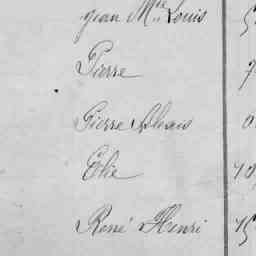 Jean Mie Louis
Pierre
Pierre Alexis
Elie
René Henri